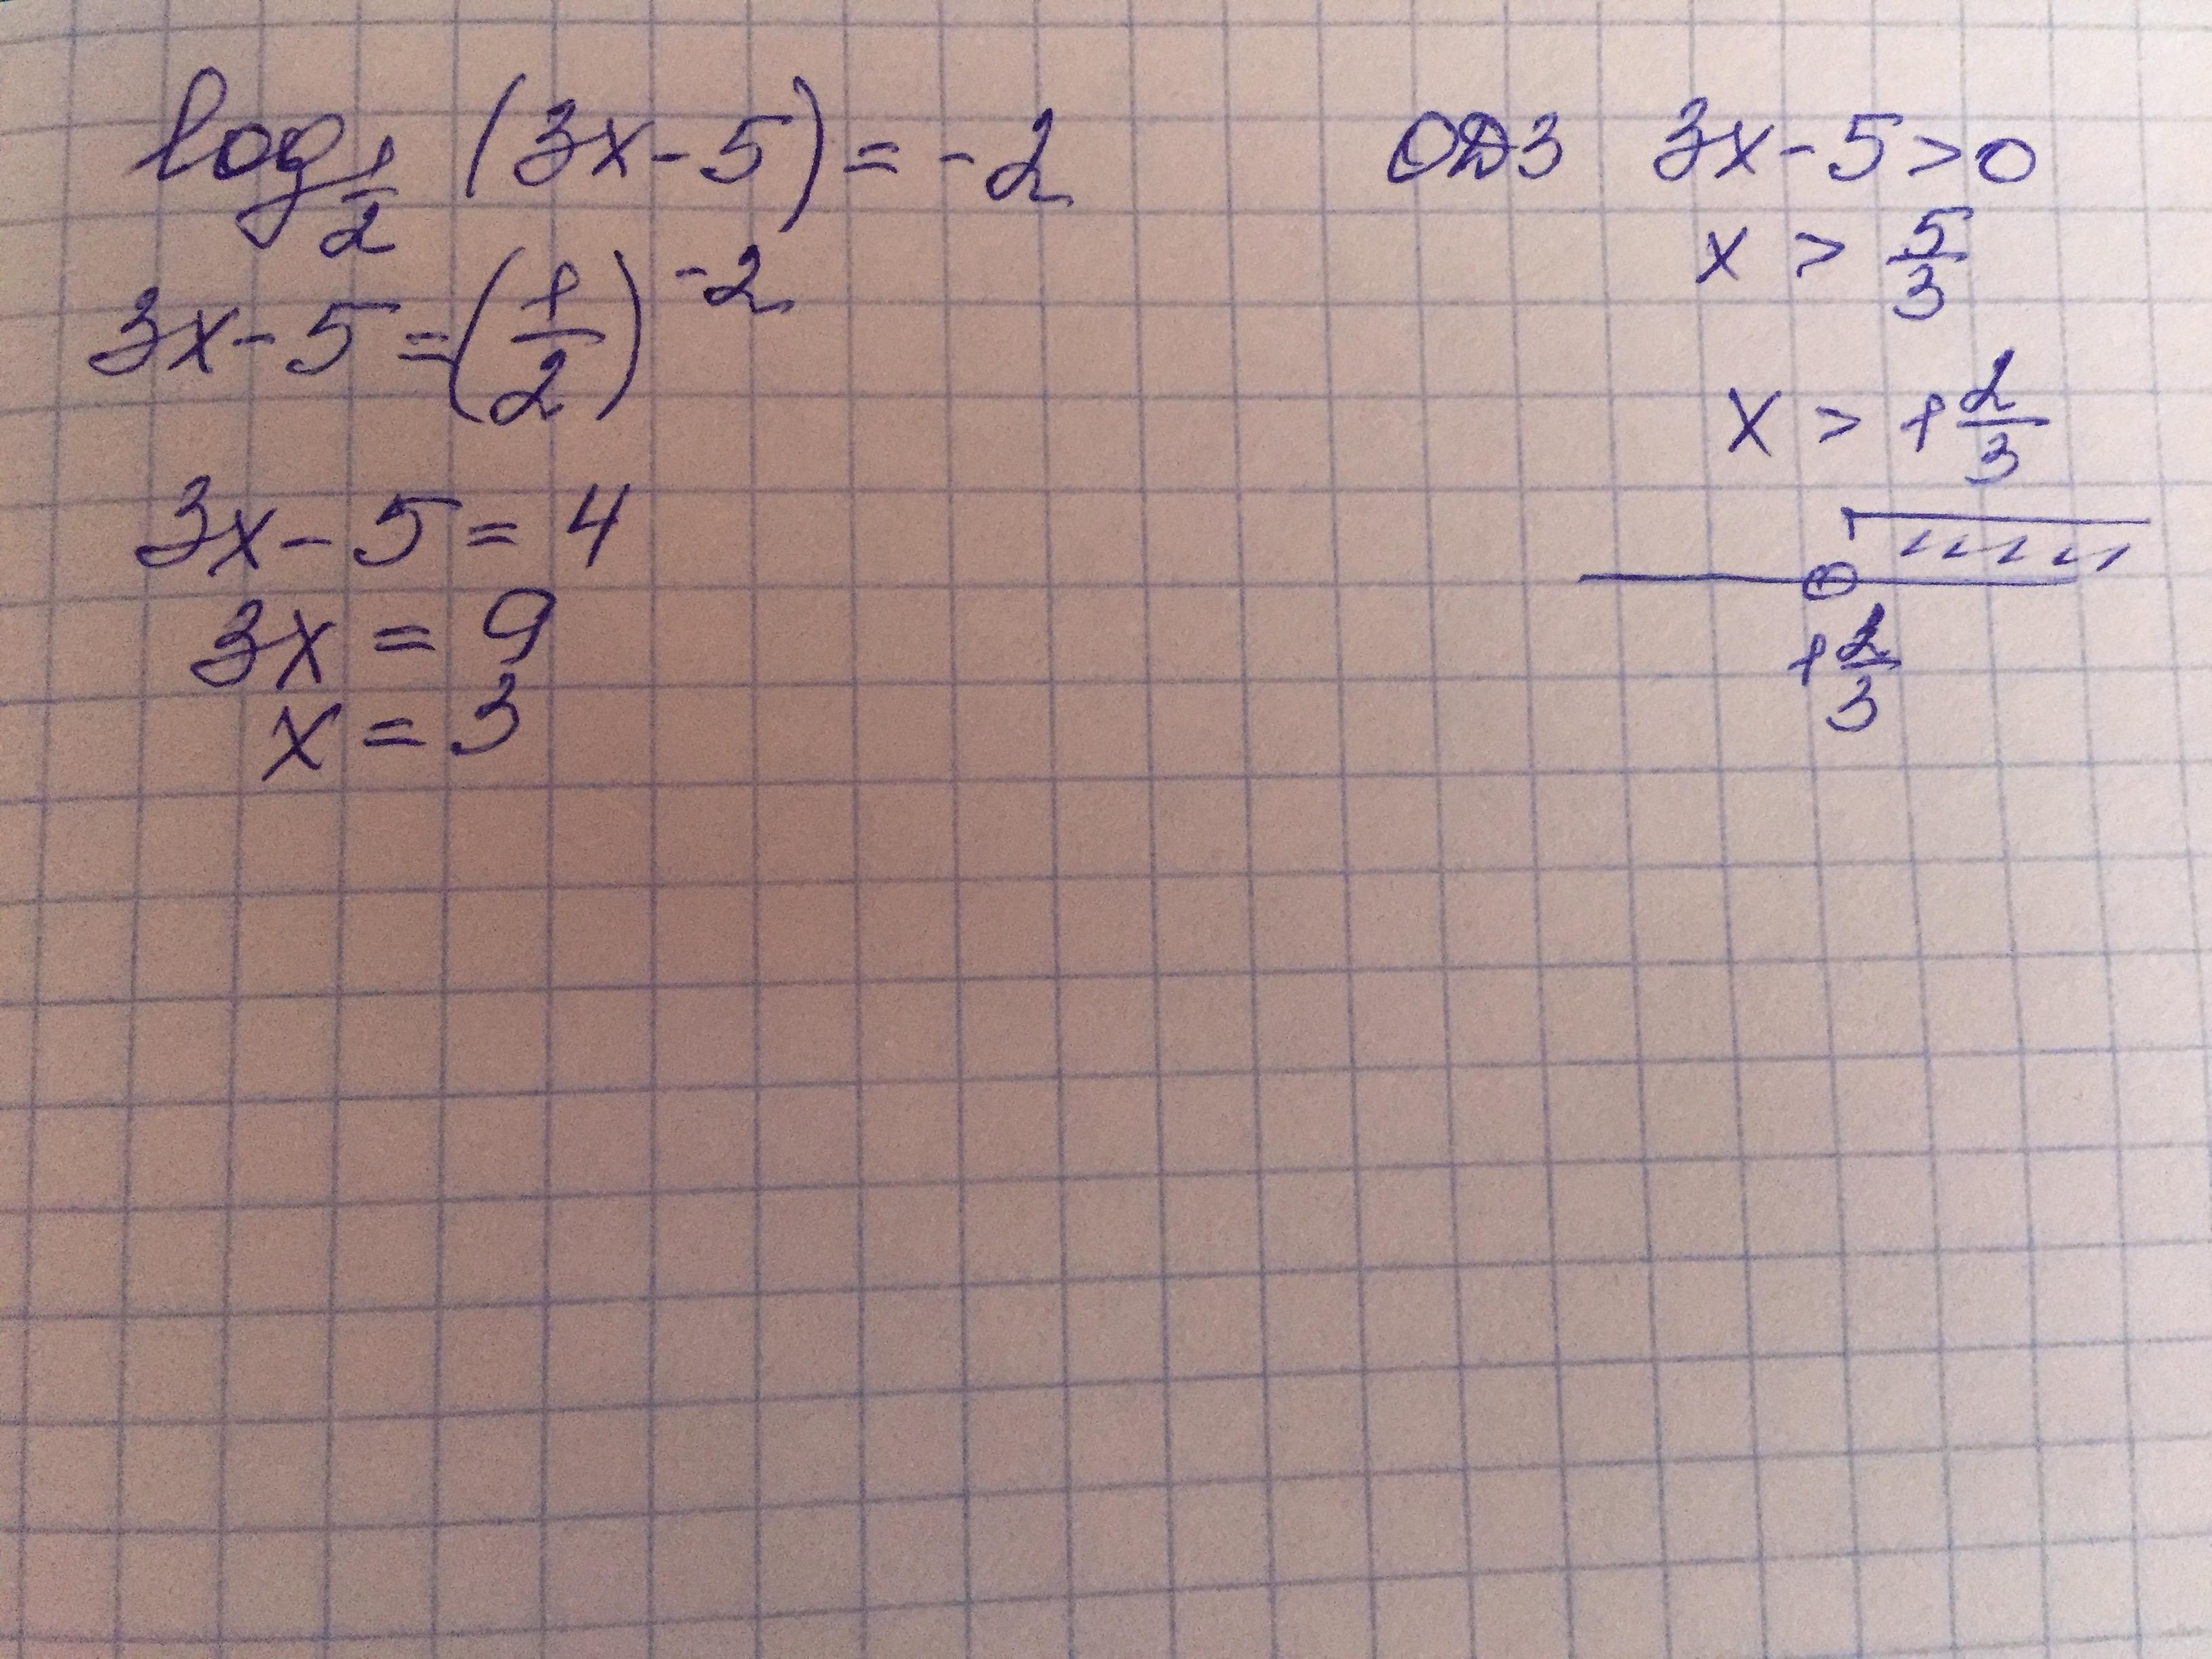 log_{1/2} (3x-5) = -2
3x-5 = (1/2)^{-2}
3x-5 = 4
3x = 9
x = 3
ОДЗ 3x-5>0
x > 5/3
x > 1 2/3
1 2/3